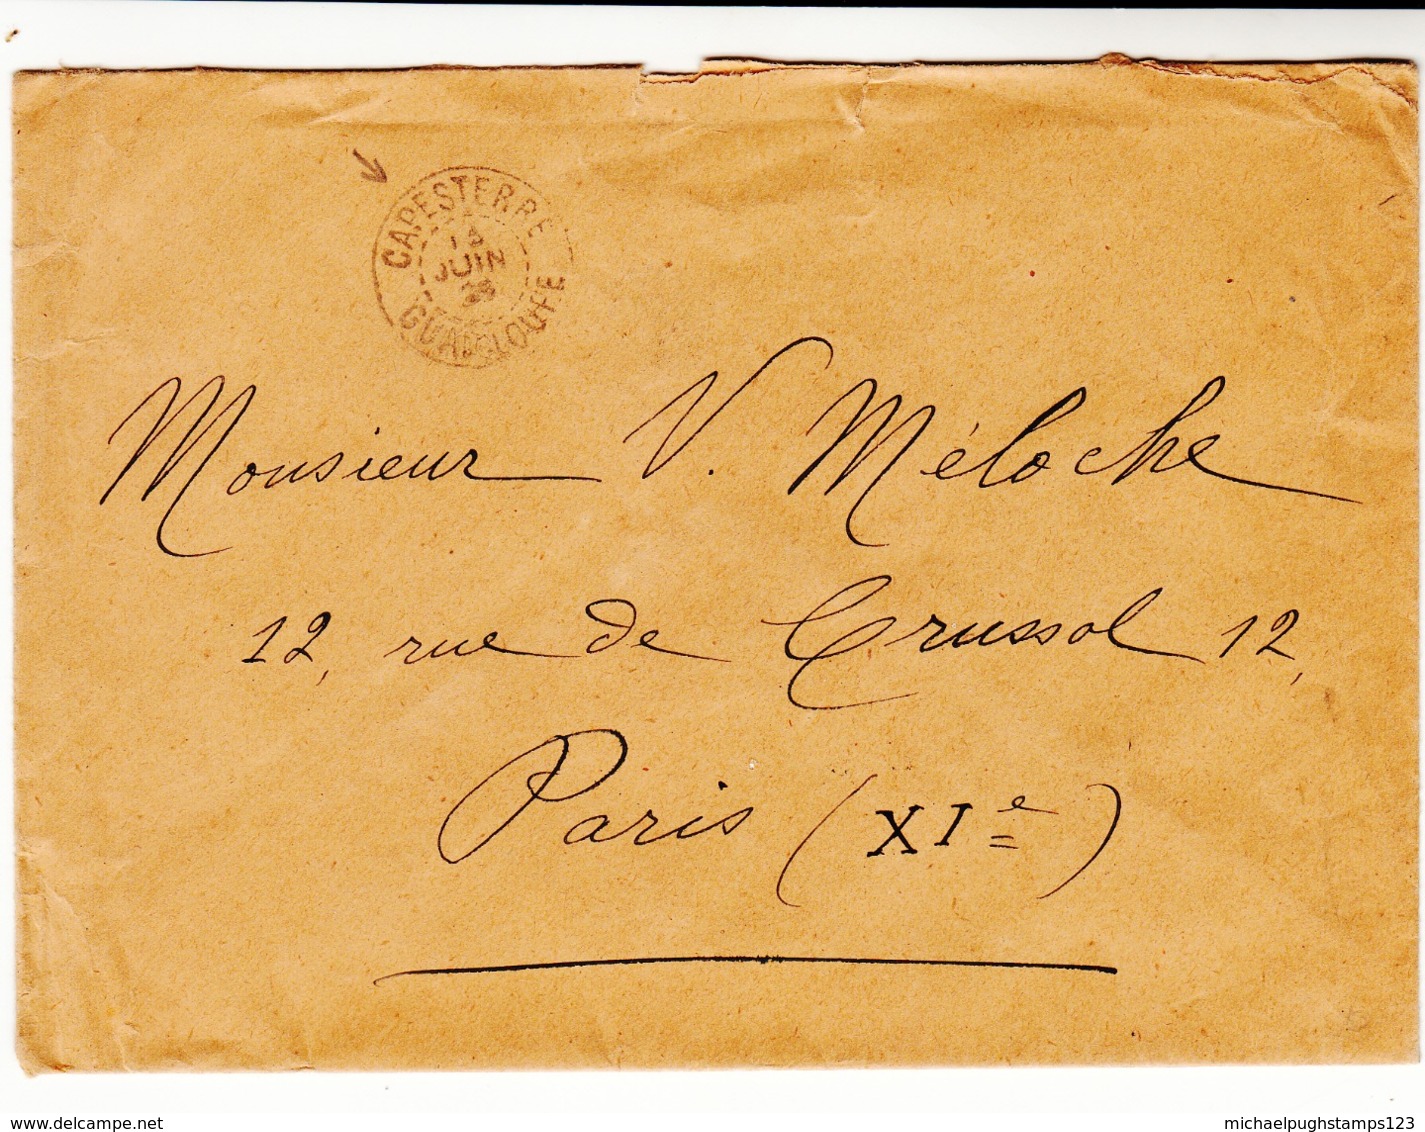 CAPESTERRE
JUIN
GUADELOUPE
Monsieur V. Méloche
12, rue de Crussol 12,
Paris (XIe)
www.delcampe.net
michaelpughstamps123